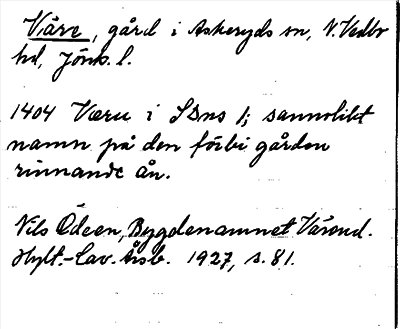 Våre, gård i Askeryds sn, N. Vedbo
hd, Jönk. l.
1404 Væru i SDns 1; sannolikt
namn på den förbi gården
rinnande ån.
Nils Ödeen, Bygdenamnet Värend.
Hylt.-Cav. Årsb. 1927, s. 81.